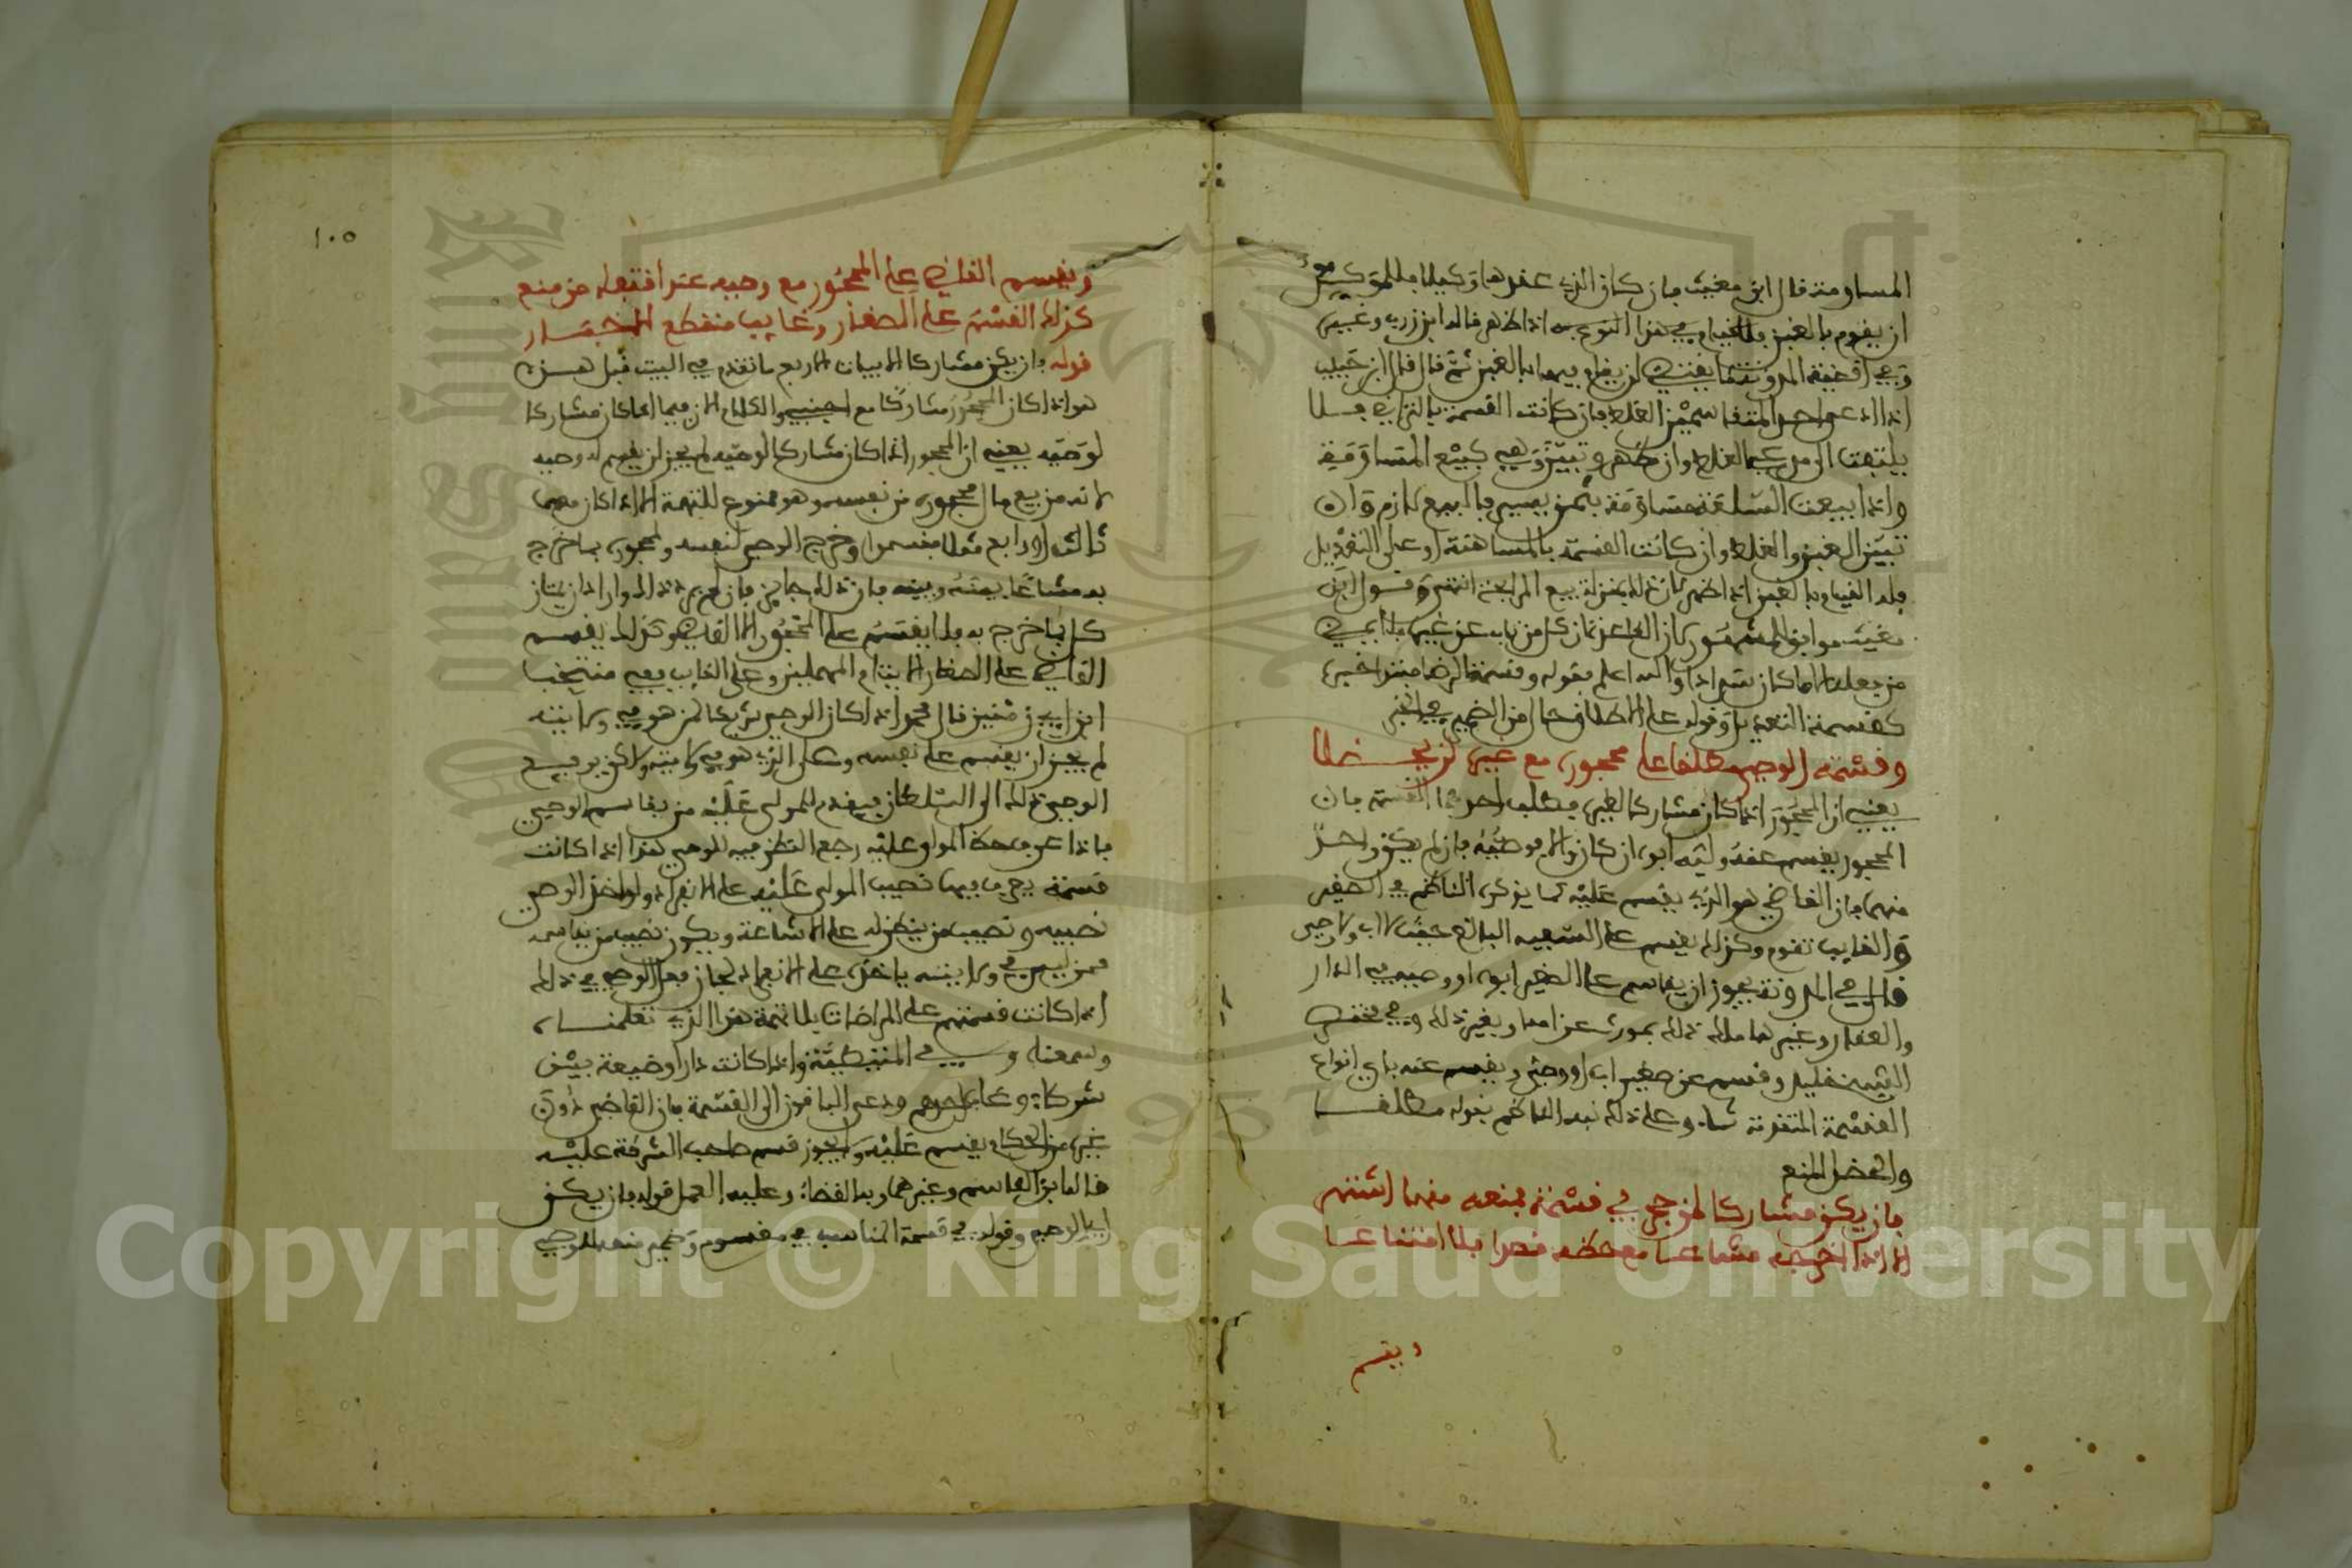 المساومة قال ابن مغيث فان كان الذي عقدها وكيلا فللموكل
ان يقوم بالغبن والقيام في هذا النوع به اذا ظهر قاله ابن زرب وغيره
وفي اقضية المدونة ما يقتضي
اذا ادعى احد المتقاسمين الغلط فان كانت القسمة بالتراضي فلا
يلتفت الى مدعي الغلط وان ظهر وتبين وهي كبيع المساومة
واذا بيعت السلعة مساومة بثمن يسير فالبيع لازم وان
تبين الغبن والغلط وان كانت القسمة بالمساهمة او على التعديل
فله القيام بالغبن اذا ظهر لان ذلك بمنزلة بيع المرابحة انتهى وقول ابن
مغيث موافق للمشهور كان الخ من ناب عن غيره فلا يمضي
من فعله الا ما كان سدادا والله اعلم وقوله وقسمة الرضا
كقسمة التعديل وقوله على الاطلاق حال من الضمير في الخبر
وقسمة الوصي مطلقا على محجوره مع غيره لن تحظلا
يعني ان المحجور اذا كان مشاركا لغيره فطلب احدهما القسمة فان
المحجور يقسم عنه وليه ابوه ان كان والا فوصيه فان لم يكن واحد
منهما فان القاضي هو الذي يقسم عليه كما يذكره الناظم في الصغير
والغايب وكذلك يقسم على السفيه البالغ
قال في المدونة يجوز ان يقاسم على الصغير ابوه او وصيه في الدار
والعقار وغيرها ملك ذلك بمورث عن امه او بغير ذلك وفي مختصر
الشيخ خليل وقسم عن صغير اب او وصي ويقسم عنه باي انواع
القسمة المتقدمة شاء وعلى ذلك نبه الناظم بقوله مطلقا
والحظل المنع
فان يكن مشاركا لمن حجر في قسمة فمنعه منها اشتهر
الا اذا اخرجه مشاعا مع حظه قصدا فلا امتناعا
ويقسم
١٠٥
ويقسم القاضي على المحجور مع وصيه عند اقتفاء من منع
كذلك القسم على الصغار وغايب منقطع الاخبار
قوله فان يكن مشاركا الابيات الاربع ما تقدم في البيت قبل هذه
هو اذا كان المحجور مشاركا مع اجنبي والكلام الان فيما اذا كان مشاركا
لوصيه يعني ان المحجور اذا كان مشاركا لوصيه لم يجز ان يقسم له وصيه
لانه من بيع مال محجوره من نفسه وهو ممنوع للتهمة الا اذا كان معهما
ثالث او رابع مثلا فقسموا وخرج الوصي لنفسه ولمحجوره بما خرج
به مشاعا بينه وبينه فان ذلك جايز فان لم يرد ذلك وارادا ان يمتاز
كل بما خرج به فلا يقسم على المحجور الا القاضي وكذلك يقسم
القاضي على الصغار الايتام المهملين وعلى الغايب ففي منتخب
ابن ابي زمنين قال محمد اذا كان الوصي شريكا لمن هو في ولايته
لم يجز ان يقسم على نفسه وعلى الذي هو في ولايته ولاكن يرفع
الوصي ذلك الى السلطان فيقدم للمولى عليه من يقاسم الوصي
فاذا عرف حظ المولى عليه رجع النظر فيه للوصي هذا اذا كانت
قسمة يعرف فيها نصيب المولى عليه على الانفراد ولو اخذ الوصي
نصيبه ونصيب من ينظر له على الاشاعة ويكون نصيب من يقاسمه
ممن ليس في ولايته ياخذه على الانفراد لجاز فعل الوصي في ذلك
اذا كانت قسمتهم على المراضات بلا تهمة هذا الذي تعلمناه
وسمعناه وفي المتيطية واذا كانت دار او ضيعة بين
شركاء وغاب احدهم ودعى الباقون الى القسمة فان القاضي دون
غيره من الحكام يقسم عليه ولا يجوز قسم صاحب الشرطة عليه
قاله ابن القاسم وغيره وبه القضاء وعليه العمل قوله فان يكن
اي الوصي وقوله في قسمة المناسب في مقسوم وضمير منعه للوصي
Copyright © King Saud University
King Saud University
1957